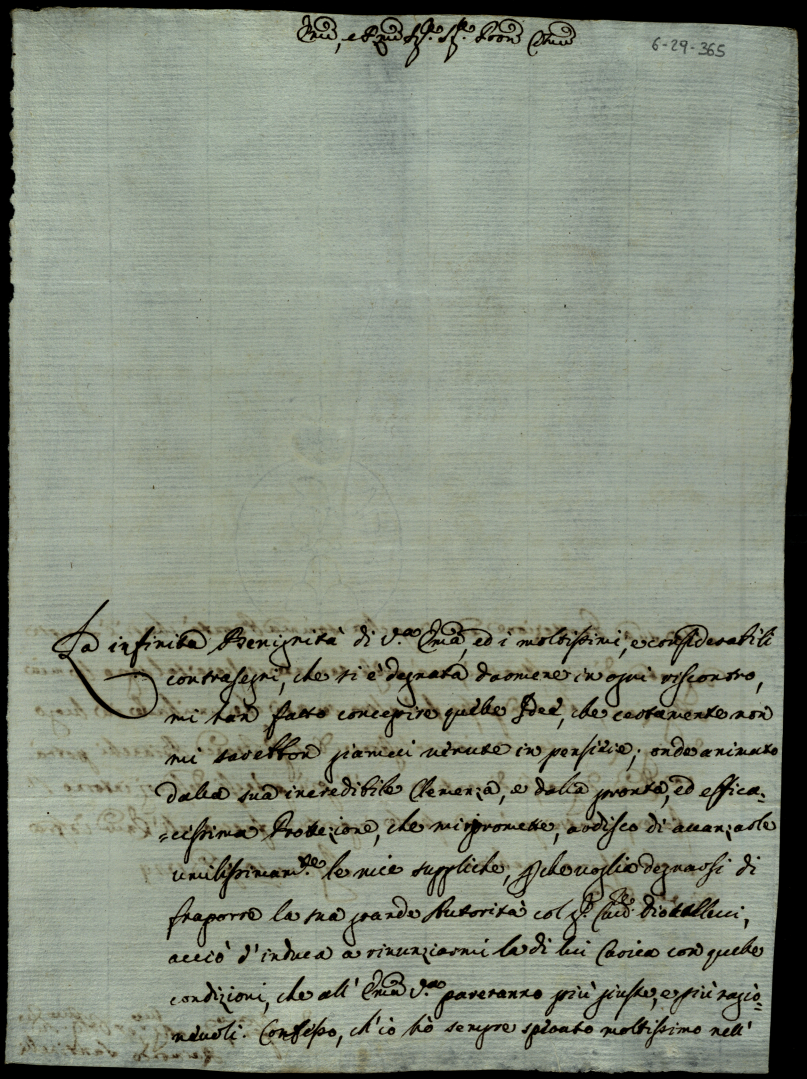 Em̃o, e Rm̃o Sig.r Sig.r Pron Cl̃mo
6-29-365
La infinita Benignità di V.ra Em̃a, ed i moltissimi, e considerabili
contrasegni, che si è degnata darmene in ogni riscontro,
mi han fatto concepire quelle Idee, che certamente non
mi sarebbon giamai venute in pensiere; onde animato
dalla sua incredibile Clemenza, e dalla pronta, ed effica-
=cissima Protezione, che mi promette, ardisco di avanzarle
umilissimam.te le mie suppliche, p che voglia degnarsi di
fraporre la sua grande Autorità col Sig.
acciò s'induca a rinunziarmi la di lui Carica con quelle
condizioni, che all' Em̃a V.ra pareranno più giuste, e più ragio-
nevoli. Confesso, ch'io hò sempre sperato moltissimo nell'